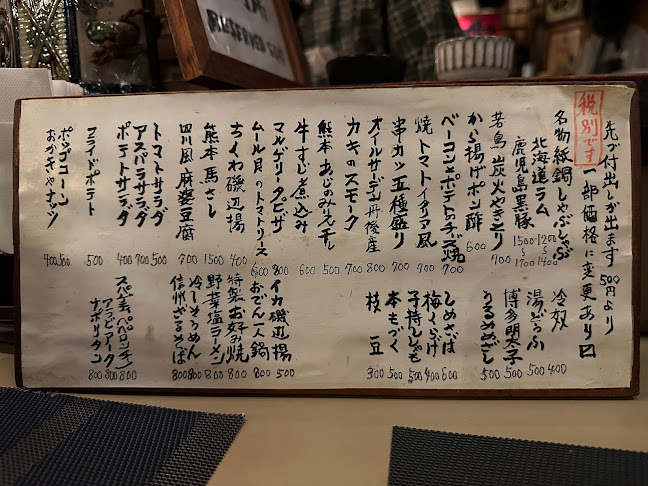 先づ付出しが出ます 500円より
税別です
一部価格に変更あり
名物 紙鍋しゃぶしゃぶ
北海道ラム 1200〜1400
鹿児島黒豚 1500〜1700
炭火やきとり 700
から揚げポン酢 600
ベーコンとポテトのチーズ焼 700
焼トマトイタリア風 700
串カツ五種盛り 700
オイルサーデン丹後産 800
カキのスモーク 700
熊本あじのみりん干し 500
牛すじ煮込み 600
マルゲリータピザ 800
ムール貝のトマトソース 600
ちくわ磯辺揚 400
熊本 馬さし 1500
四川風 麻婆豆腐 700
トマトサラダ 500
アスパラサラダ 700
ポテトサラダ 400
フライドポテト 500
ポップコーン 300
おかきやナッツ 400
冷奴 400
湯どうふ 500
博多明太子 500
うるめめざし 500
しめさば 600
梅くらげ 400
子持ししゃも 500
本もづく 500
枝豆 300
イカ磯辺揚 500
おでん一人鍋 800
特製お好み焼 800
野菜塩ラーメン 800
冷しそうめん 800
信州ざるそば 800
スパゲティ ペペロンチーノ 800
アラビアータ 800
ナポリタン 800
RESERVED